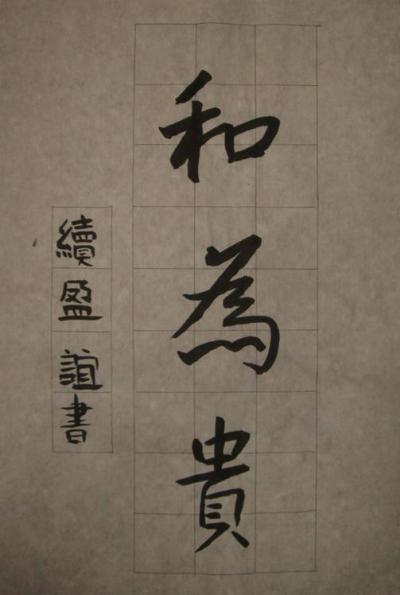 和為貴
續盈誼書